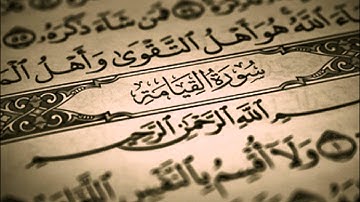 فَمَن شَآءَ ذَكَرَهُۥ
آءَ ٱللَّهُ هُوَ أَهْلُ ٱلتَّقْوَىٰ وَأَهْلُ ٱلْمَ
سُورَةُ القِيَامَةِ
بِسْمِ ٱللَّهِ ٱلرَّحْمَٰنِ ٱلرَّحِيمِ
١ وَلَآ أُقْسِمُ بِٱلنَّفْسِ ٱللَّوَّا